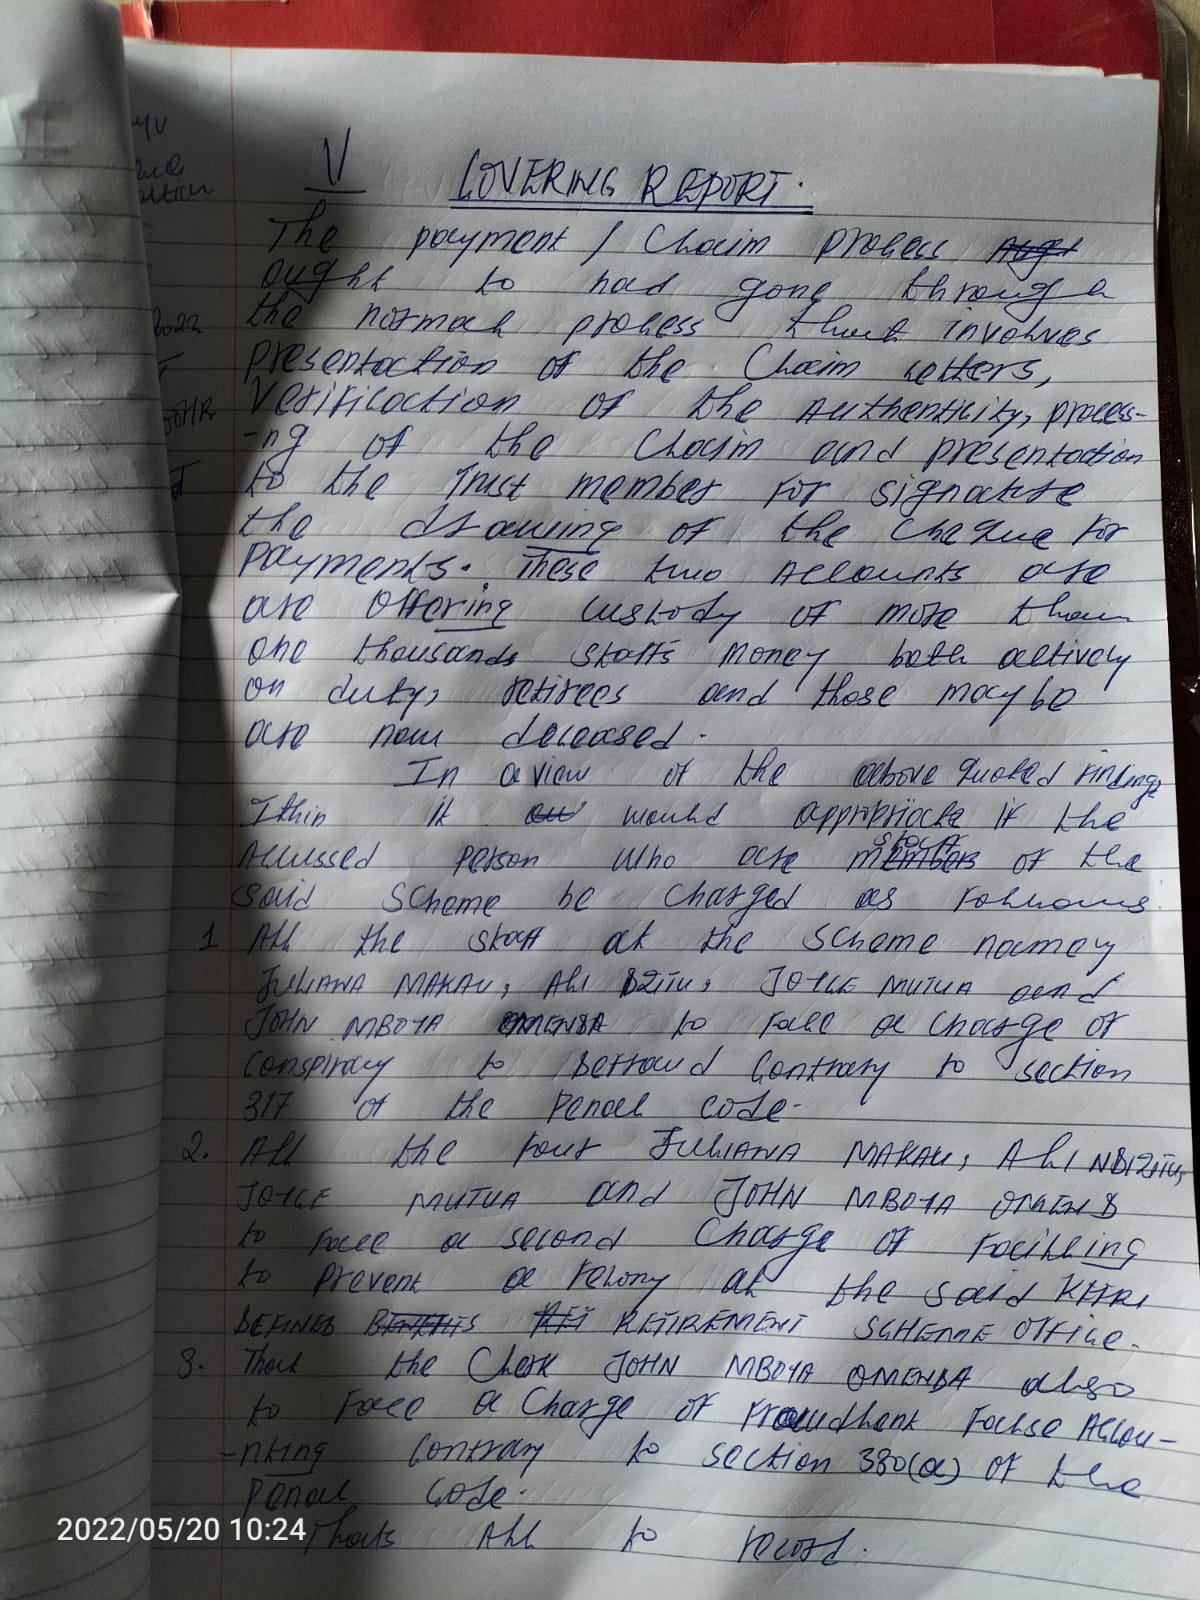 V COVERING REPORT.
The payment / Claim process
ought to had gone through
the normal process that involves
presentation of the Claim letters,
Verification of the Authenticity, process-
-ng of the Claim and presentation
to the Trust member for signature
the drawing of the cheque for
payments. These two Accounts are
are offering custody of more than
one thousands staffs money both actively
on duty, retirees and those may be
are now deceased.
In a view of the above quoted findings
I thin it would appropriate if the
Accussed person who are staff of the
said scheme be charged as follows
1 All the staff at the scheme namey
JULIANA MAKAU, ALI DZITU, JOYCE MUTUA and
JOHN MBOYA OMENDA to face a charge of
conspiracy to Defraud Contrary to section
317 of the Penal code.
2. All the four JULIANA MAKAU, ALI
JOYCE MUTUA and JOHN MBOYA
to face a second Charge of
to prevent a felony at the said
DEFINED RETIREMENT SCHEME office.
3. That the Clerk JOHN MBOYA OMENDA also
to face a Charge of Fraudlent False Accou-
-nting Contrary to section 330(a) of the
Penal Code.
Thats All to record.
2022/05/20 10:24
2022